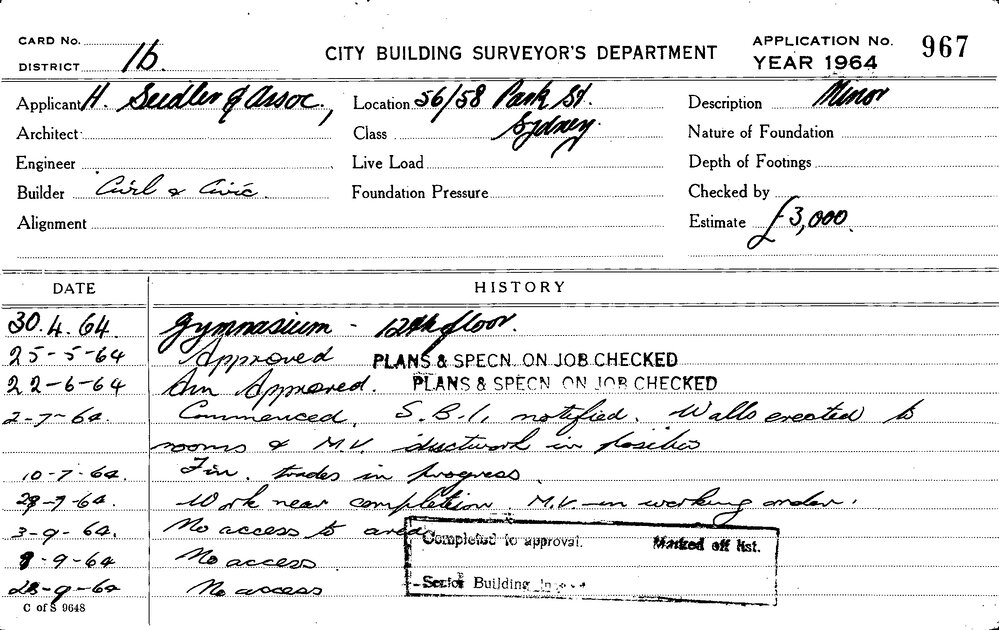 CARD No.
DISTRICT 1b.
CITY BUILDING SURVEYOR'S DEPARTMENT
APPLICATION No. 967
YEAR 1964
Applicant H. Seidler & Assoc.,
Location 56/58 Park St.
Sydney.
Description Minor
Architect
Class
Nature of Foundation
Engineer
Live Load
Depth of Footings
Builder Civil & Civic.
Foundation Pressure
Checked by
Alignment
Estimate £3,000.
DATE HISTORY
30.4.64. Gymnasium - 12th floor.
25-5-64 Approved PLANS & SPECN. ON JOB CHECKED
22-6-64 Am Approved. PLANS & SPECN. ON JOB CHECKED
2-7-64. Commenced. S.B.I. notified. Walls erected to
rooms & M.V. ductwork in position
10-7-64. Fin. trades in progress.
29-7-64. Work near completion. M.V. in working order.
3-9-64. No access to area
8-9-64 No access
28-9-64 No access
Completed to approval. Marked off list.
Senior Building
C of S 9648